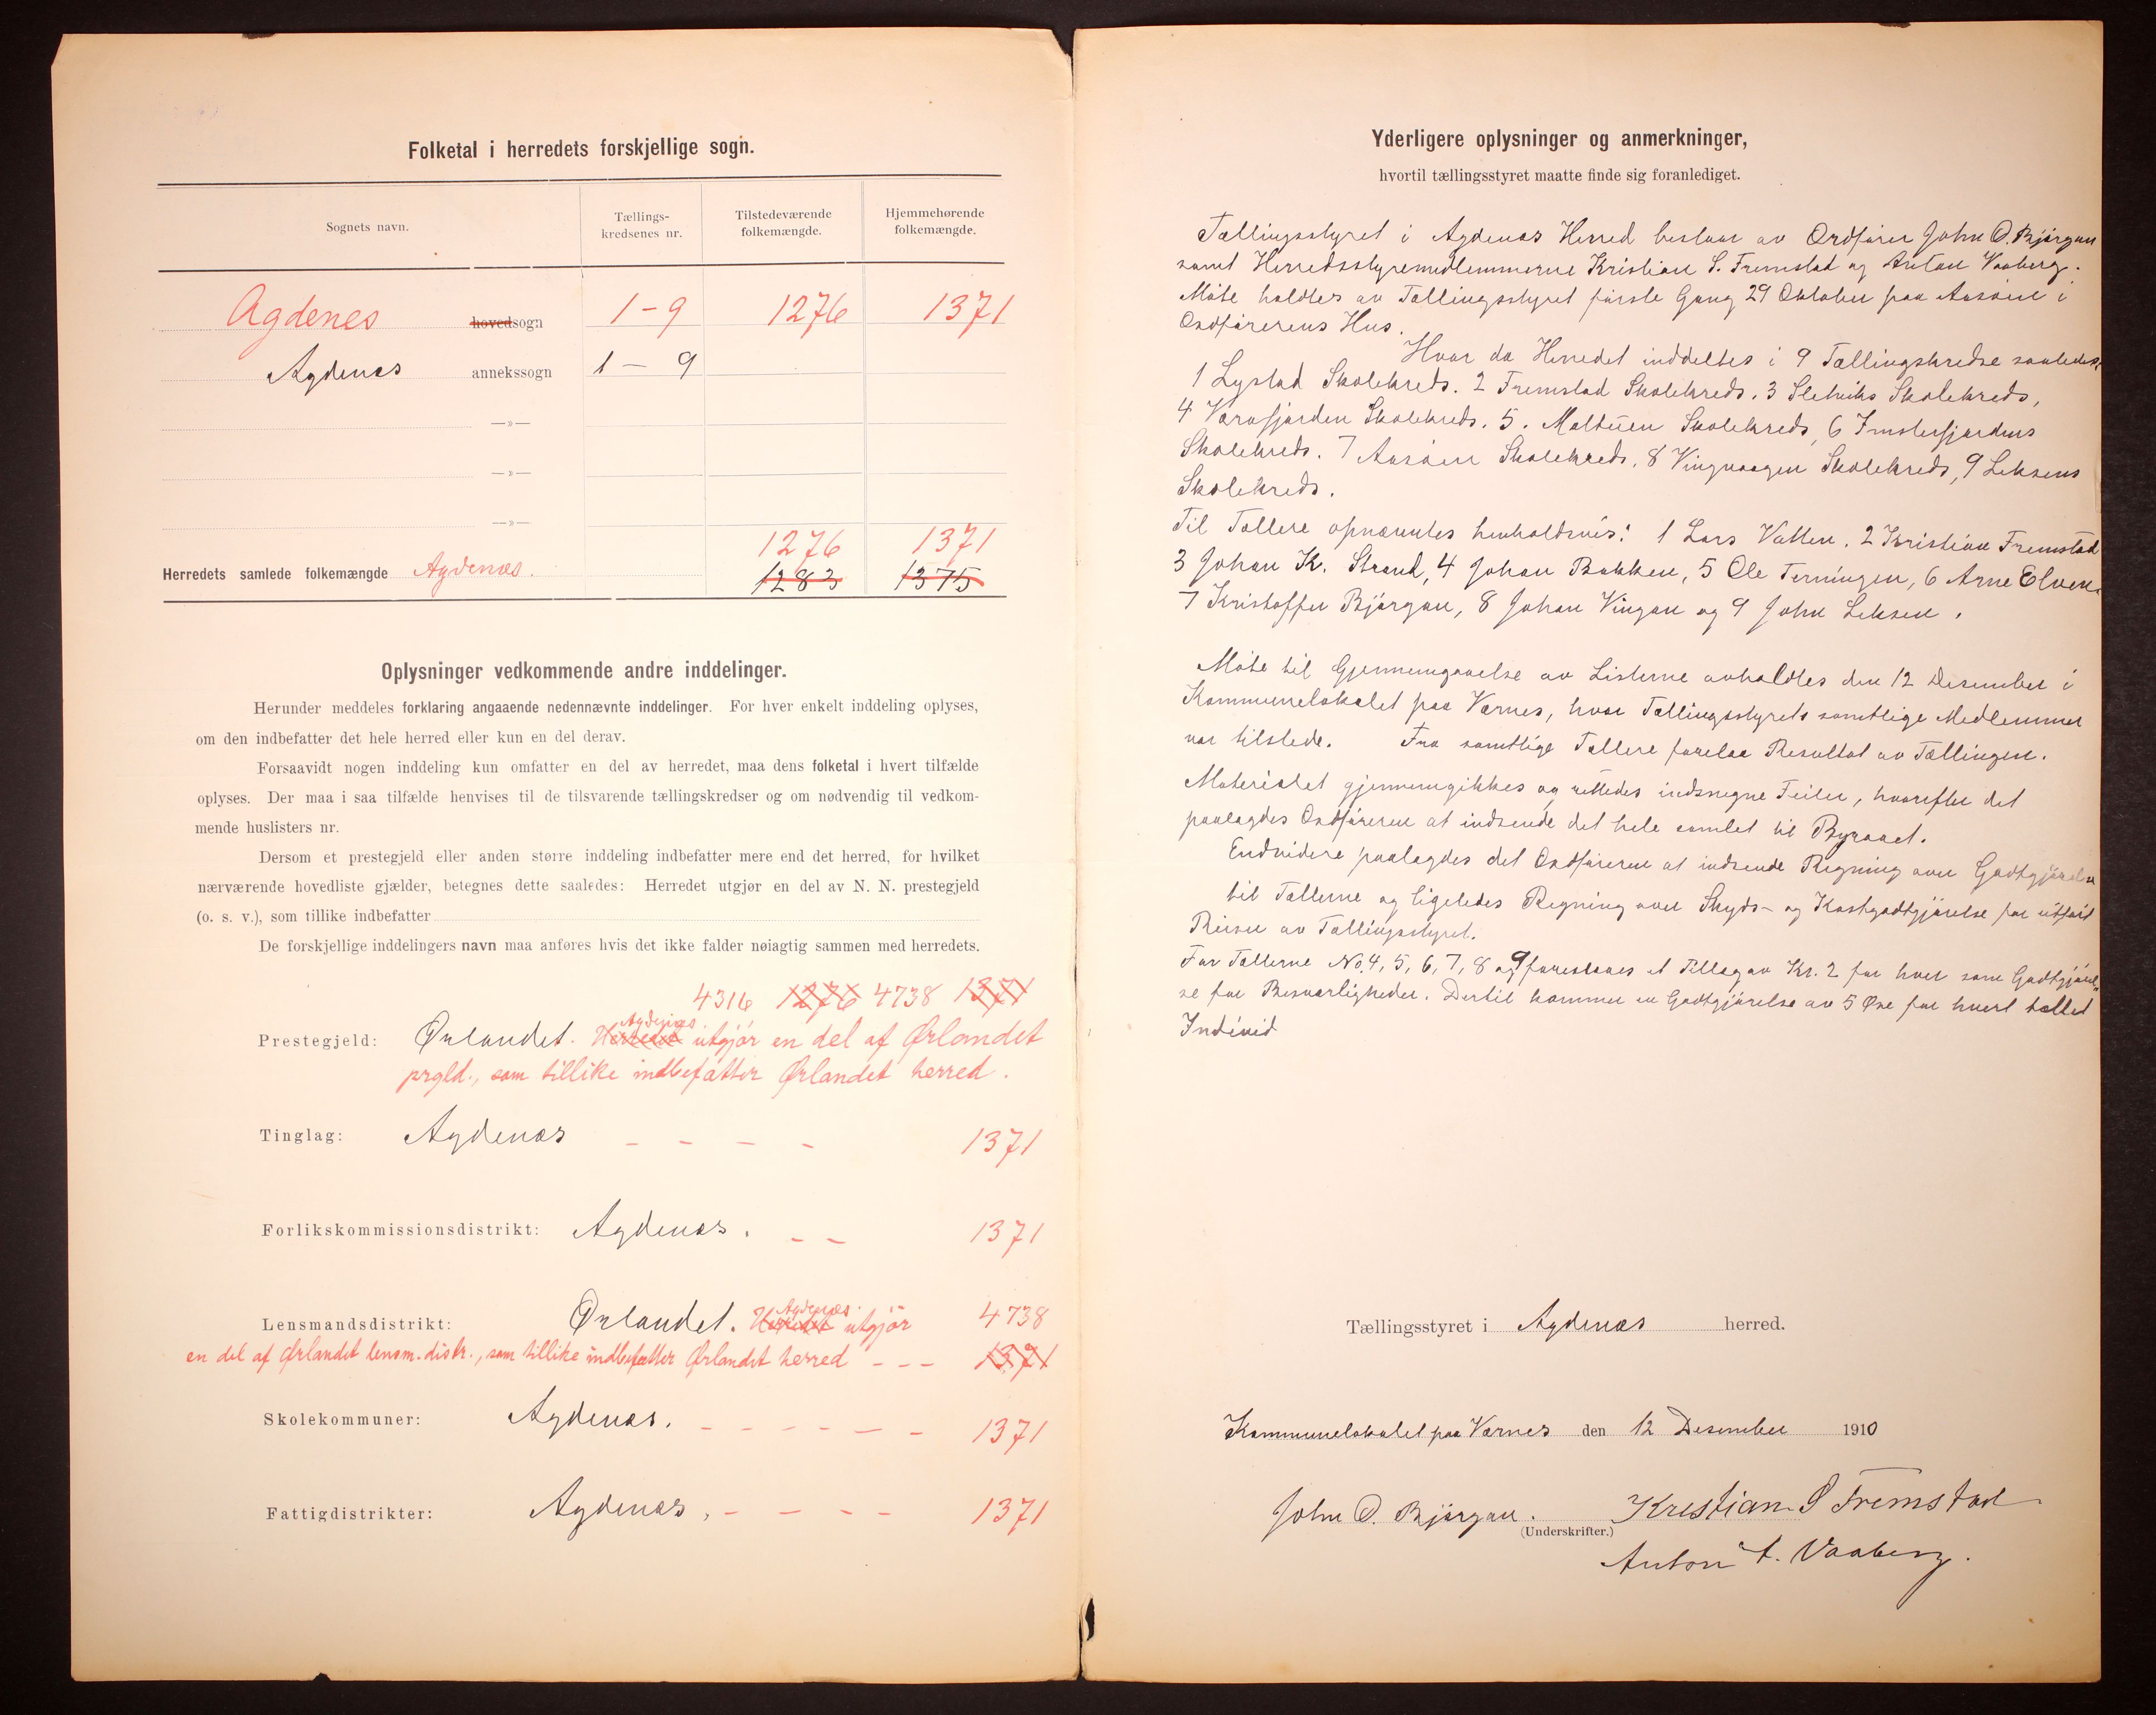 Folketal i herredets forskjellige sogn.
Sognets navn.
Tællings-
kredsenes nr.
Tilstedeværende
folkemængde.
Hjemmehørende
folkemængde.
Agdenes hovedsogn 1-9 1276 1371
Agdenes annekssogn 1 - 9
—»—
—»—
—»—
1276 1371
Herredets samlede folkemængde Agdenes. 1283 1375
Oplysninger vedkommende andre inddelinger.
Herunder meddeles forklaring angaaende nedennævnte inddelinger. For hver enkelt inddeling oplyses,
om den indbefatter det hele herred eller kun en del derav.
Forsaavidt nogen inddeling kun omfatter en del av herredet, maa dens folketal i hvert tilfælde
oplyses. Der maa i saa tilfælde henvises til de tilsvarende tællingskredser og om nødvendig til vedkom-
mende huslisters nr.
Dersom et prestegjeld eller anden større inddeling indbefatter mere end det herred, for hvilket
nærværende hovedliste gjælder, betegnes dette saaledes: Herredet utgjør en del av N. N. prestegjeld
(o. s. v.), som tillike indbefatter
De forskjellige inddelingers navn maa anføres hvis det ikke falder nøiagtig sammen med herredets.
4316 1276 4738 1371
Agdenes
Prestegjeld: Ørlandet. Herredet utgjør en del af Ørlandet
prgld., som tillike indbefatter Ørlandet herred.
Tinglag: Agdenes - - - - 1371
Forlikskommissionsdistrikt: Agdenes. - - 1371
Agdenes
Lensmandsdistrikt: Ørlandet. Herredet utgjør 4738
en del af Ørlandet lensm. distr., som tillike indbefatter Ørlandet herred - - - 1371
Skolekommuner: Agdenes. - - - - - - 1371
Fattigdistrikter: Agdenes, - - - - 1371
Yderligere oplysninger og anmerkninger,
hvortil tællingsstyret maatte finde sig foranlediget.
Tællingsstyret i Agdenes Herred bestaar av Ordfører John O. Bjørgan
samt Herredsstyremedlemmerne Kristian S. Fremstad og Anton Vaaberg.
Møte holdtes av Tællingsstyret første Gang 29 Oktober paa Aasøen i
Ordførerens Hus.
Hvor da Herredet inddeltes i 9 Tællingskredse saaledes:
1 Lystad Skolekreds. 2 Fremstad Skolekreds. 3 Sletviks Skolekreds,
4 Værafjorden Skolekreds. 5. Moltuen Skolekreds, 6 Imsterfjordens
Skolekreds. 7 Aasøen Skolekreds. 8 Vingvaagen Skolekreds, 9 Leksens
Skolekreds.
Til Tællere opnævntes henholdsvis: 1 Lars Vatten. 2 Kristian Fremstad
3 Johan K. Strand, 4 Johan Bakken, 5 Ole Terningen, 6 Arne Elven.
7 Kristoffer Bjørgan, 8 Johan Vingan og 9 John Leksen.
Møte til Gjennemgaaelse av Listerne avholdtes den 12 Desember i
Kommunelokalet paa Værnes, hvor Tællingsstyrets samtlige Medlemmer
var tilstede. Fra samtlige Tællere forelaa Resultat av Tællingen.
Materialet gjennemgikkes og rettedes indsnegne Feiler, hvorefter det
paalagdes Ordføreren at indsende det hele samlet til Byraaet.
Endvidere paalagdes det Ordføreren at indsende Regning over Godtgjørelse
til Tællerne og ligeledes Regning over Skyds- og Kostgodtgjørelse for utført
Reiser av Tællingsstyret.
For Tællerne No 4, 5, 6, 7, 8 og 9 foreslaaes et Tillæg av Kr. 2 for hver som Godtgjørel"
se for Besværligheder. Dertil kommer en Godtgjørelse av 5 Øre for hvert tællet
Individ
Tællingsstyret i Agdenes herred.
Kommunelokalet paa Værnes den 12 Desember 1910
John O. Bjørgan. Kristian S Fremstad
(Underskrifter.)
Anton A. Vaaberg.